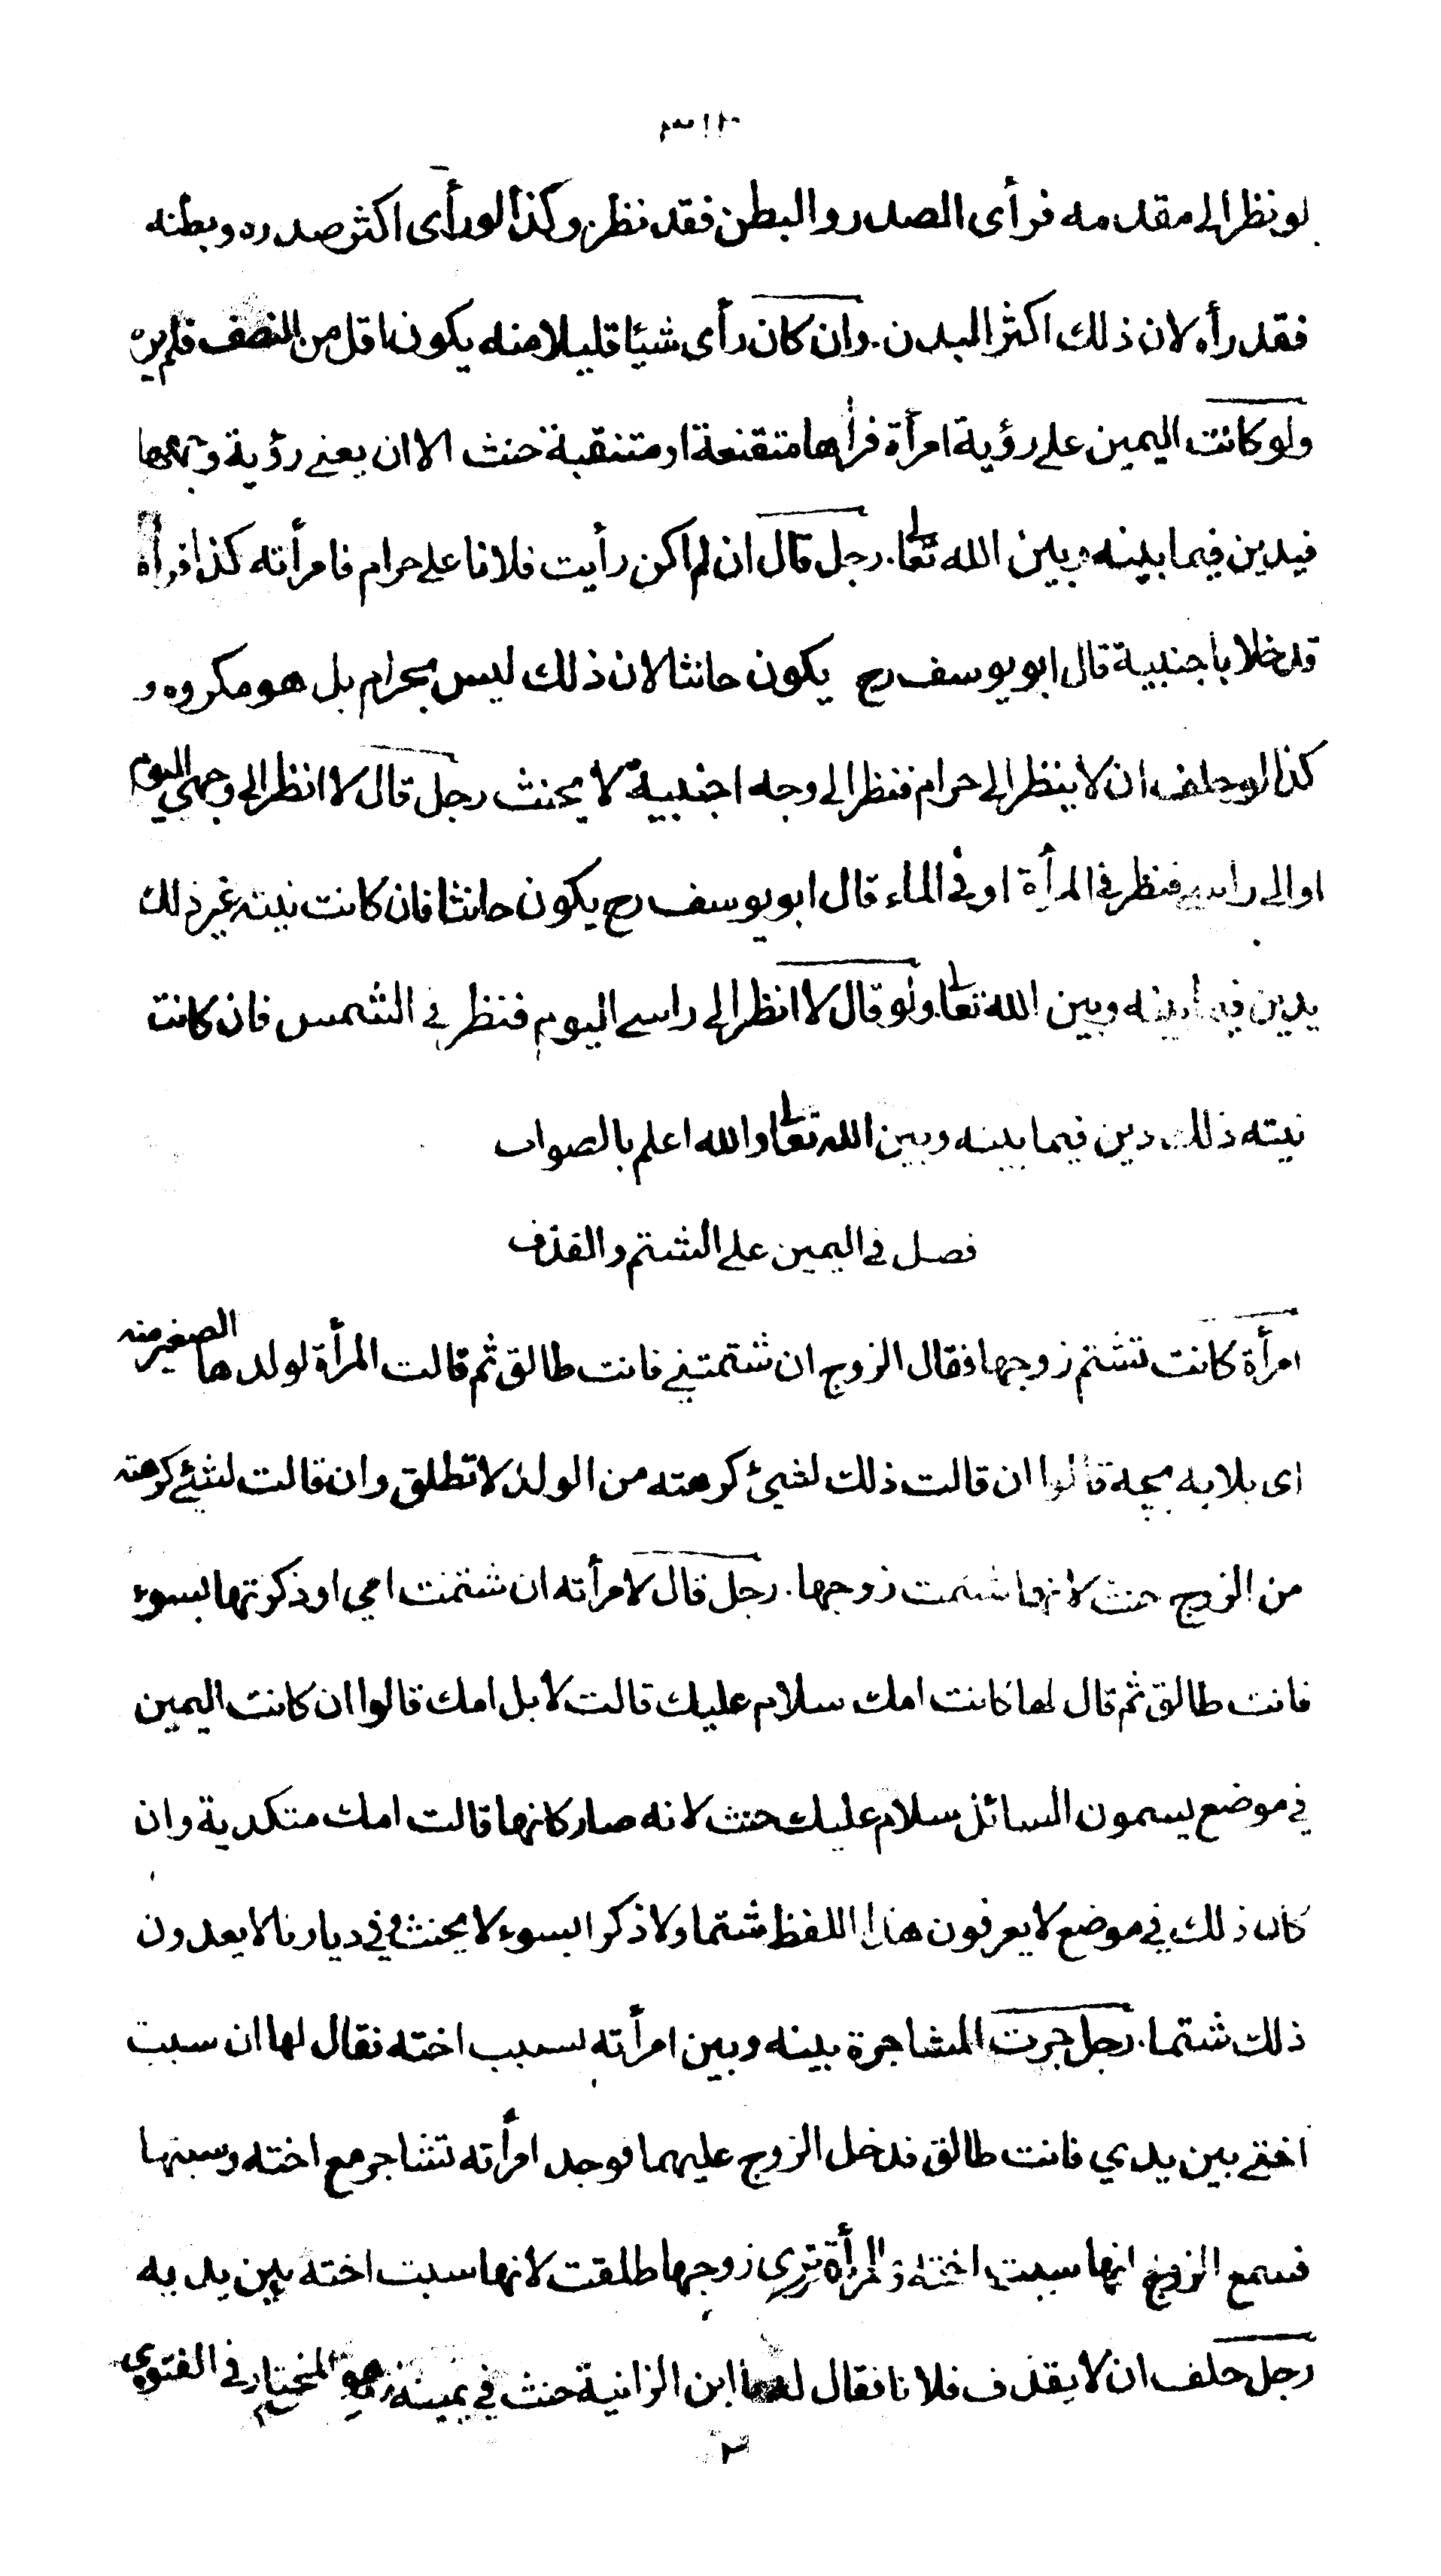 لو نظر الى مقدمه فرأى الصدر والبطن فقد نظر وكذا لو رأى اكثر صدره وبطنه
فقد رأه لان ذلك اكثر البدن. وان كان رأى شيئا قليلا منه يكون اقل من النصف فلم يره
ولو كانت اليمين على رؤية امرأة فرأها متقنعة او متنقبة حنث الا ان يعنى رؤية وجهها
فيدين فيما بينه وبين الله تعالى. رجل قال ان لم اكن رأيت فلانا على حرام فامرأته كذا فرأه
قد خلا باجنبية قال ابو يوسف رح يكون حانثا لان ذلك ليس بحرام بل هو مكروه و
كذا لو حلف ان لا ينظر الى حرام فنظر الى وجه اجنبية لا يحنث رجل قال لا انظر الى وجهي اليوم
او الى راسي فنظر في المرأة او في الماء قال ابو يوسف رح يكون حانثا فان كانت نيته غير ذلك
يدين فيما بينه وبين الله تعالى ولو قال لا انظر الى راسي اليوم فنظر في الشمس فان كانت
نيته ذلك دين فيما بينه وبين الله تعالى والله اعلم بالصواب
فصل في اليمين على الشتم والقذف
امرأة كانت تشتم زوجها فقال الزوج ان شتمتني فانت طالق ثم قالت المرأة لولدها الصغير منه
اى بلايه بچه قالوا ان قالت ذلك لشيئ كرهته من الولد لا تطلق وان قالت لشئ كرهته
من الزوج حنث لانها شتمت زوجها. رجل قال لامرأته ان شتمت امي او ذكرتها بسوء
فانت طالق ثم قال لها كانت امك سلام عليك قالت لا بل امك قالوا ان كانت اليمين
في موضع يسمون السائل سلام عليك حنث لانه صار كانها قالت امك متكدية وان
كان ذلك في موضع لا يعرفون هذا اللفظ شتما ولا ذكرا بسوء لا يحنث وفي ديارنا لا يعدون
ذلك شتما. رجل جرت المشاجرة بينه وبين امرأته بسبب اخته فقال لها ان سببت
اختي بين يدي فانت طالق فدخل الزوج عليهما فوجد امرأته تتشاجر مع اخته وسبتها
فسمع الزوج انها سبت اخته والمرأة ترى زوجها طلقت لانها سبت اخته بين يديه
رجل حلف ان لا يقذف فلانا فقال له يا ابن الزانية حنث في يمينه هو المختار في الفتوى